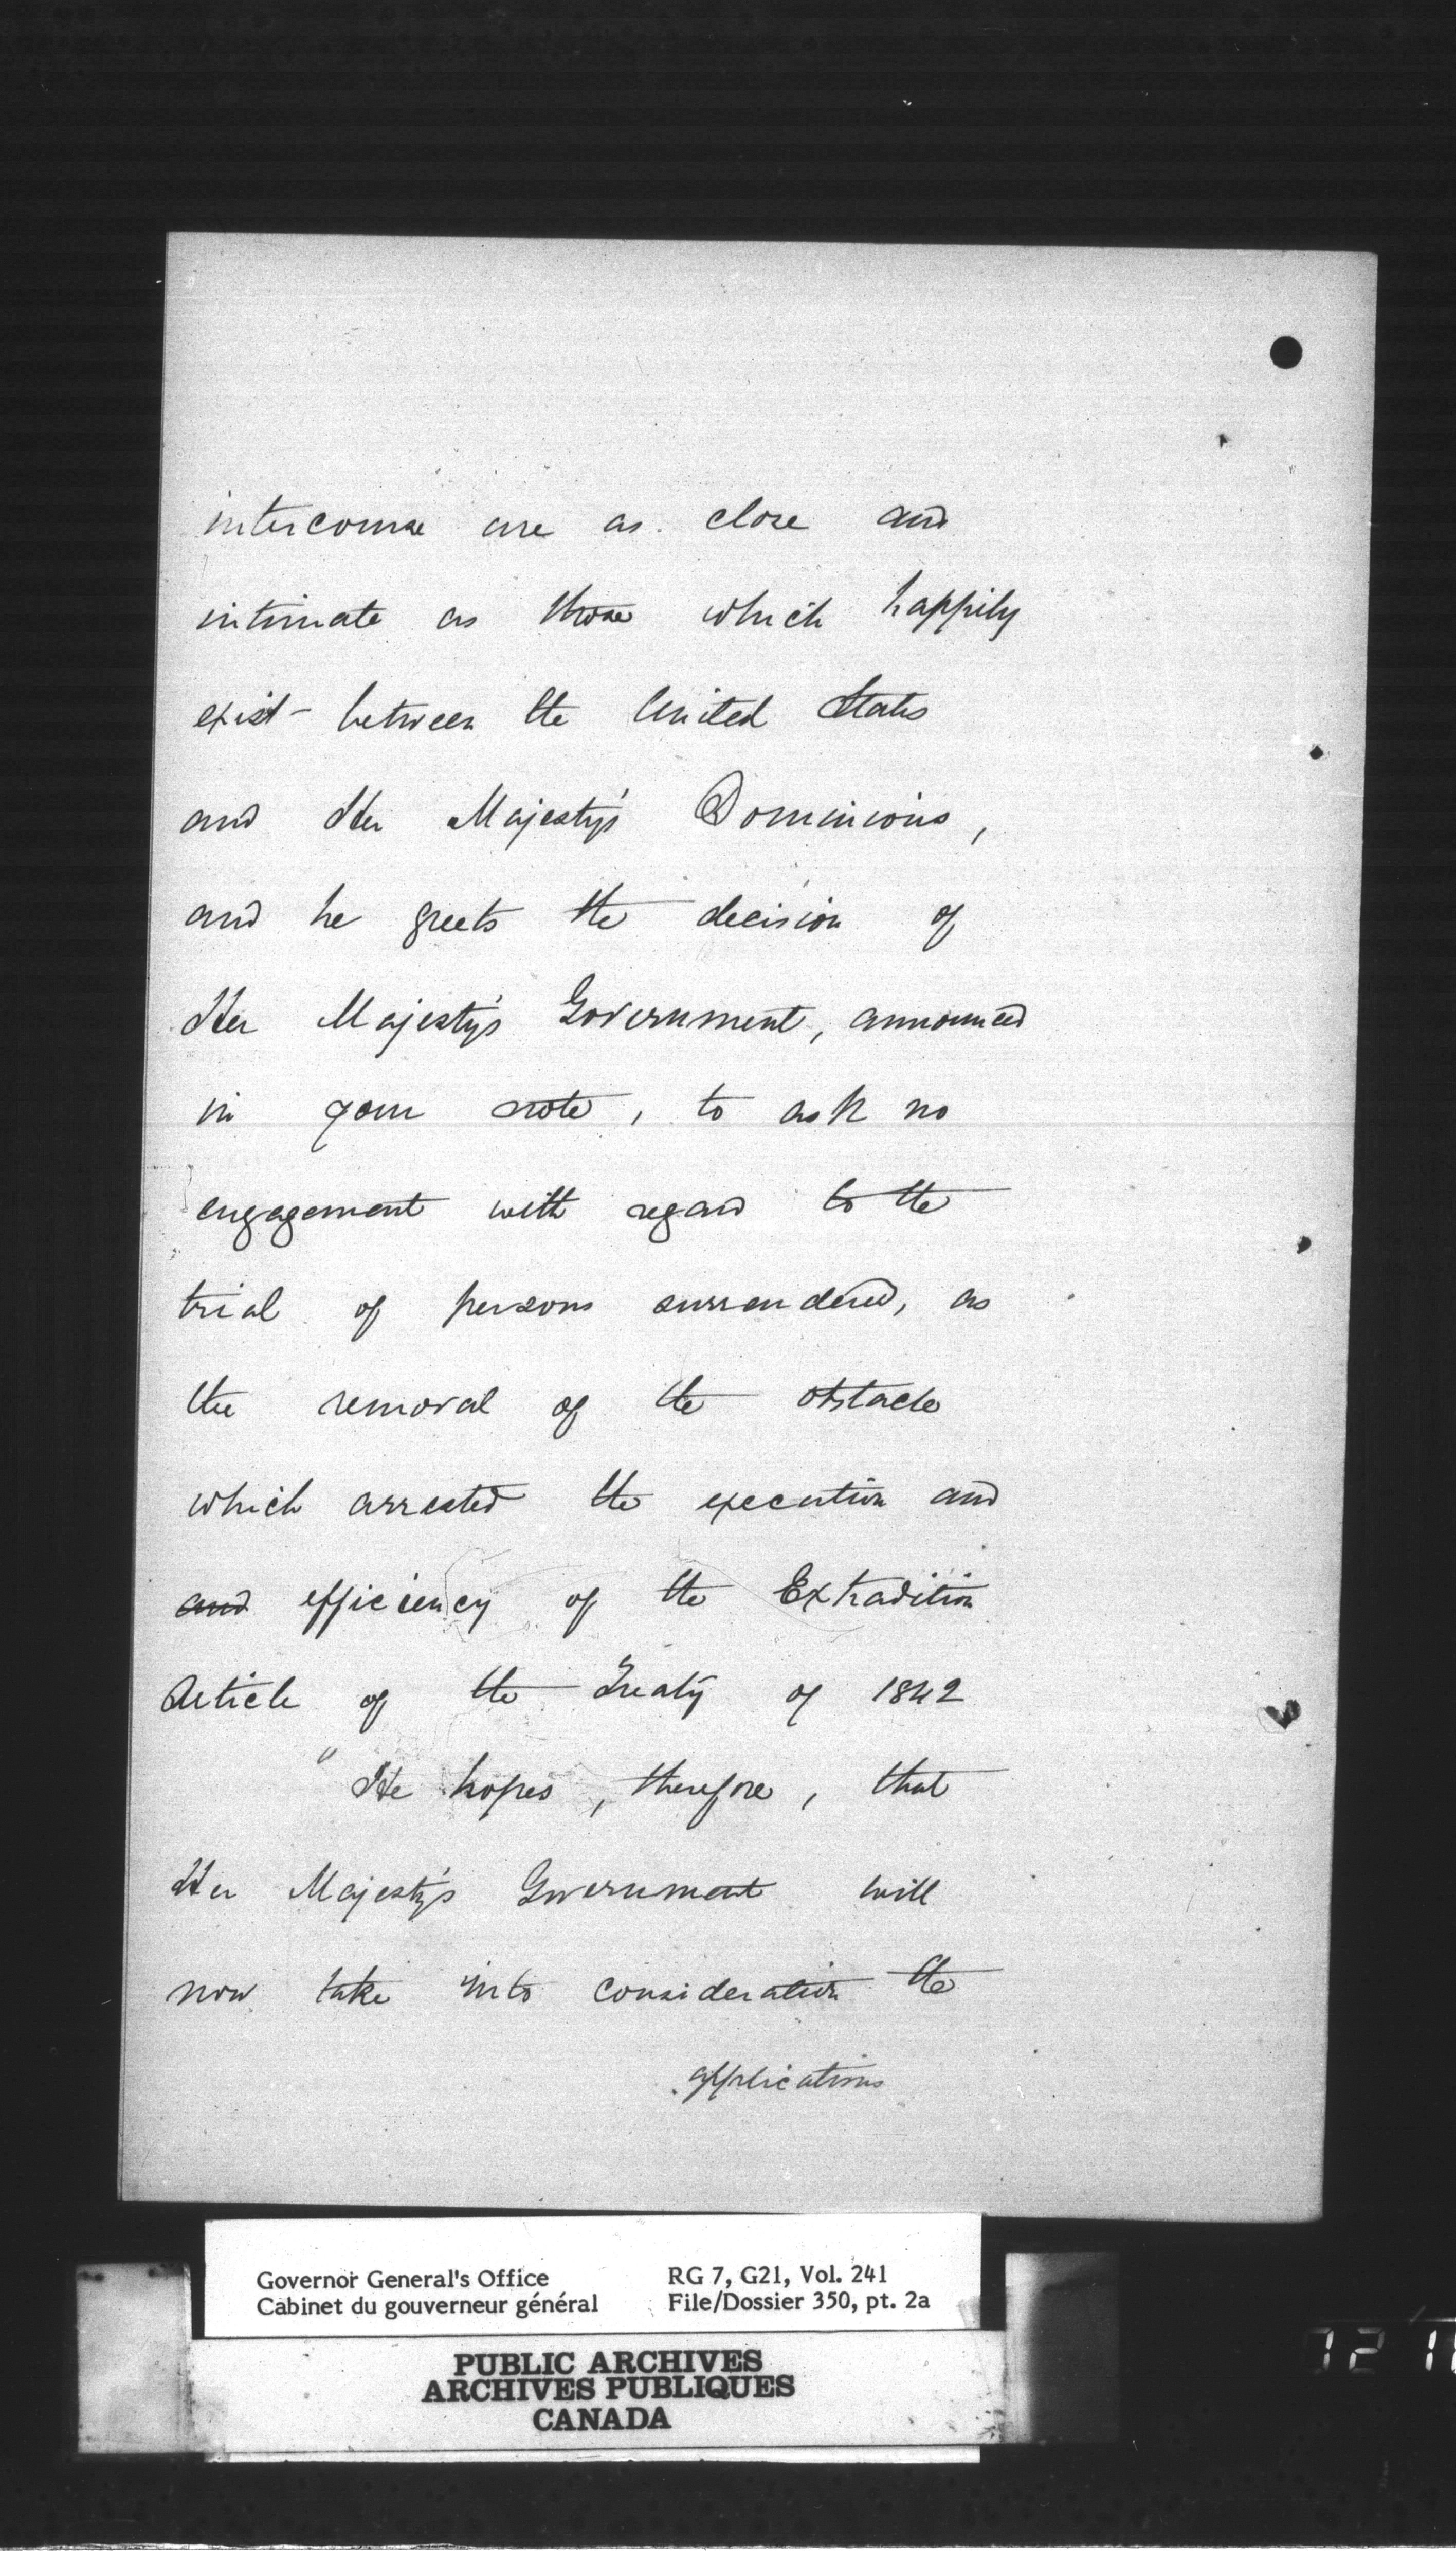 intercourse are as close and
intimate as those which happily
exist between the United States
and Her Majesty's Dominions,
and he greets the decision of
Her Majesty's Government, announced
in your note, to ask no
engagement with regard to the
trial of persons surrendered, as
the removal of the obstacle
which arrested the execution and
and efficiency of the Extradition
Article of the Treaty of 1842
"He hopes, therefore, that
Her Majesty's Government will
now take into consideration the
applications
Governor General's Office RG 7, G21, Vol. 241
Cabinet du gouverneur général File/Dossier 350, pt. 2a
PUBLIC ARCHIVES
ARCHIVES PUBLIQUES
CANADA